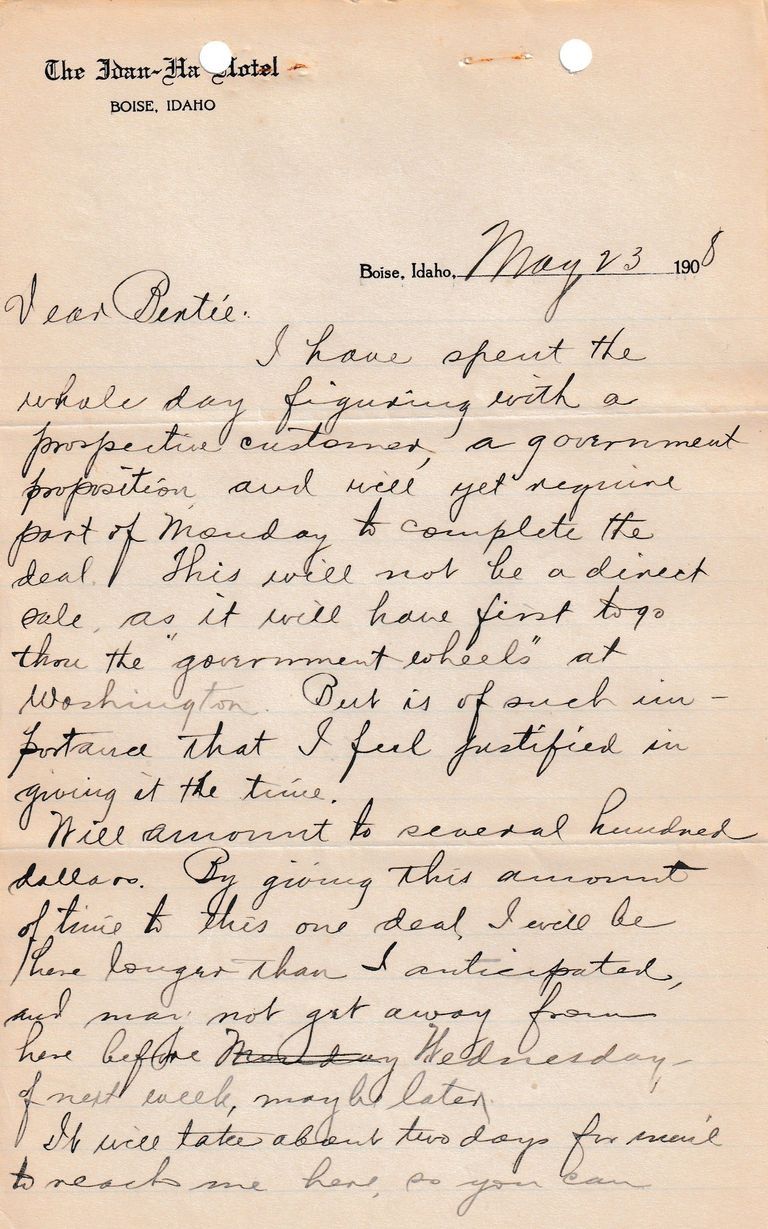 The Idan-Ha Hotel
BOISE, IDAHO
Boise, Idaho, May 23 1908
Dear Bertie:
I have spent the
whole day figuring with a
prospective customer, a government
proposition, and will yet require
part of Monday to complete the
deal. This will not be a direct
sale, as it will have first to go
thru the "government wheels" at
Washington. But is of such im-
portance that I feel justified in
giving it the time.
Will amount to several hundred
dollars. By giving this amount
of time to this one deal, I will be
here longer than I anticipated,
and may not get away from
here before Monday Wednesday,
of next week, maybe later.
It will take about two days for mail
to reach me here, so you can